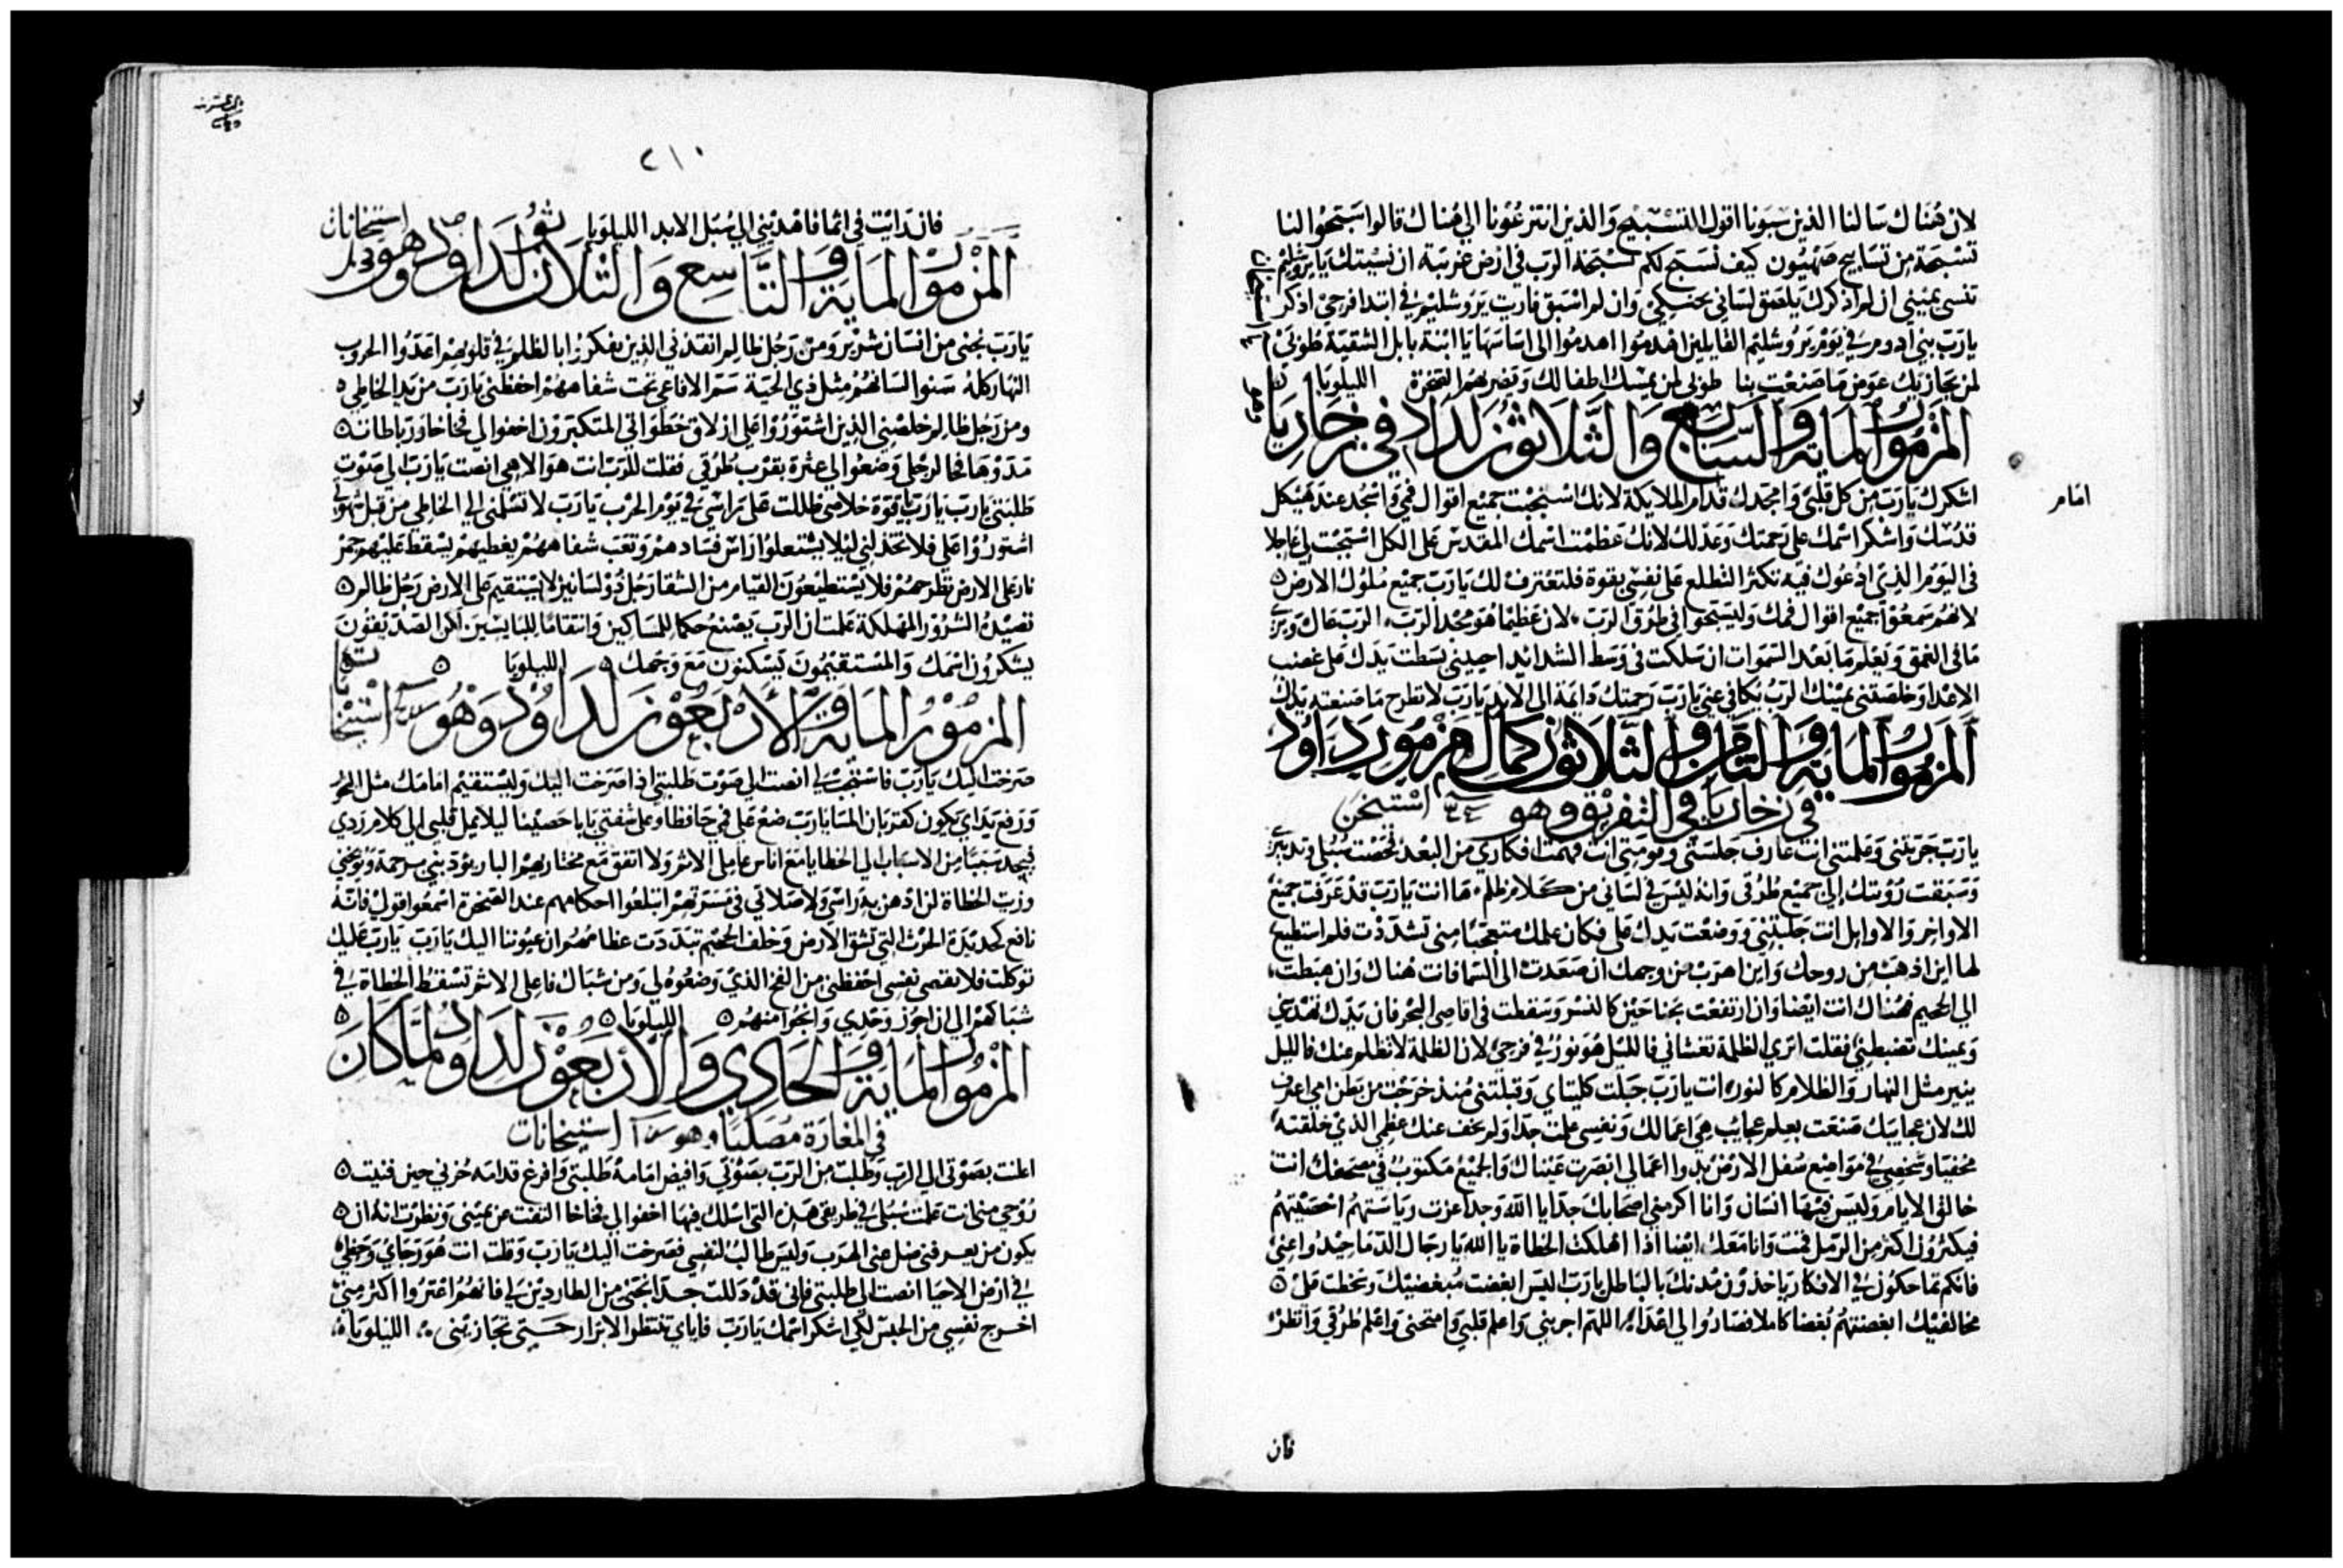 لان هُناك سَالنا الذين سَبونا اقول التسْبيح وَالذين انتزعُونا الي هُناك قالوا سَبّحُوا لنا
تسْبحَة من تسَابيح صَهْيُون كيف نسَبح لكم تسْبحَة الرَب في ارْض غريبَة ان نسْيتك يا يرُوشلِيم
تنسى يميْني ان لم اذكرك يلصَق لسَاني بحنكِي وان لم اسْبق فارت يَرُوشليْم في ابتدا فرحِي اذكر
يارَب بني ادوم في يَوْم يَرُوشليْم القايلين اهدمُوا اهدمُوا الى اسَاسَهَا يَا ابْنة بابل الشقيّة طُوبى
لمن يجَازيْك عوَض مَا صَنعْت بنا طوبى لمن يمْسك اطفالك وَيضربهم الصَّخرة الليلويَا
المزمُور المايَة وَالسّابع وَالثلاثون لدَاود في زخاريا
اشكرك يَارَب مِن كل قلبي وَامجّدك قدام الملايكة لانك اسْتجبْت جَميْع اقوال فمي وَاسْجُد عند هيْكل
امَام
قدسْك وَاشكر اسْمك على رَحمتك وَعَدلك لانك عَظمْت اسْمك المقدس على الكل اسْتجبْت لي عَاجلا
في اليَوم الذِي ادعُوك فيْه تكثر التطلع على نفسِي بقوة فلتعْترف لك يَارَب جَميْع مُلوك الارْض
لانهُم سَمعُوا جَميْع اقوال فمك وَليسَبّحوا في طرُق الرَب لان عَظيما هُوَ مجْد الرَب الرَب عَال وَيَرى
مَا في العمق وَيعْلم مَا بعْد السّمَوات ان سَلكت في وَسَط الشدايد احييْتني بسَطت يَدك على غضب
الاعْدا وَخلصَتني يميْنك الرَب يكافي عني يَارَب رَحمتك دَايمَة الى الابد يَارَب لا تطرح مَا صَنعته يدَاك
المزمُور المايَة وَالثامن وَالثلاثون كمال مزمور دَاود
في زخاريَا في التفريْق وهو ٣٤ اسْتيخن
يارَب جَربتني وَعلمتني انت عارف جَلسَتي وقومَتي انت فهمت افكاري من البعْد فحَصْت سُبُلي وَتدبيري
وَسَبقت رُؤيتك الي جَميْع طُرُقي وَانهُ ليْس في لسَاني من كلام ظلم هَا انت يَارَب قد عَرَفت جميْع
الاواخر وَالاوايل انت جَبلتنِي وَوضعْت يَدك على فكان علمك متعجّبا منى تشدّدت فلم استطيع
لها اين اذهَبْ من روحك وَاين اهرَب من وجهك ان صَعَدت الى السّمَا فانت هُناك وَان هبَطت
الي الجحيم فهُناك انت ايْضا وَان ارتفعْت بجناحَيْن كالنسْر وَسَقطت في اقاصِي البحْر فان يَدك تهْديني
وَيمينك تضبطنِي فقلت اتري الظلمة تغشاني فالليْل هُوَ نورٌ في فرَحِي لان الظلمة لا تظلم عنك فالليل
ينير مثل النهار وَالظلام كالنور انت يارَب جَبلت كليتاي وَقبلتني مُنذ خرَجْت من بَطن امي اعترف
لك لان عجايبك صَنعَت بعِلم عجَايب هي اعْمَالك وَنفسِي علمت جدا وَلم يخف عنك عظمِي الذِي خلقته
مخفيا وشخصِي في مَوَاضِع سُفل الارْض بُدوا اعمالي ابصَرت عَيْناك وَالجميْع مَكتوبٌ في مصحَفك انت
خالق الايام وَليسَ فيْهَا انسَان وَانا اكرم بي اصحَابك جدا يا اللّه وَجدا عزت ريَاسَتهم احْصَيْتهم
فيكثرُون اكثر من الرّمل قمت وَانا مَعَك ايْضا اذا اهلكت الخطاة يا الله يَا رجَال الدّمَا حيْدُوا عني
فانكم تمَاحكون في الافكار ياخذوْن مُدنك بالبَاطل يارَب اليس ابغضت مُبغضيْك وَسخطت على
مخالفيْك ابغضتهُم بُغضا كاملا فصَارُوا لي اعْدَاء اللهم اجربني وَاعلم قلبي وَامتحني وَاعْلم طُرُقي وَانظرْ
فان
٢١٠
فان رَايت في اثما فاهْديْني الي سُبَل الابد الليلويا
المزمُور المايَة وَالتَّاسِع وَالثلاثون لدَاود وهو استيخانات
يَارَب نجني من انسَان شرّيْر وَمن رَجُل ظالم انقذني الذِين يفكرُوا بالظلم في قلوبهم اعَدُّوا الحروب
النهار كلهُ سَنوا لسَانهُم مثل ذِي الحيّة سَمّ الافاعي تحت شفاههم احفظني يَارَب من يَد الخاطي
ومن رَجُل ظالم خلصْنِي الذِين اشتوَرُوا على ازلاق خطوَاتي المتكبّرُون اخفوا لي فخاخا وَرباطات
مَدوْهَا فخا لرجلي وَضعُوا لي عثرة بقرْب طُرُقي فقلت للرَب انت هو الاهي انصت يَارَبّ الى صَوْت
طلبتي يارَب يَارَب يا قوة خلاصي ظللت على رَاسي في يَوْم الحرْب يَارَب لا تسْلمني الي الخاطي من قبل شهوتي
اشتورُوا على فلا تخذلني ليلا يسْتعلوا رَاس فسَادهم وَتعَب شفاههُم يغطيهم يسقط عليهم جمر
نار على الارض تطرحهُم فلا يسْتطيْعُون القيَام من الشقا رَجُل ذوْ لسَانين لا يسْتقيم على الارض رَجُل ظالم
تصيْدهُ الشرُوْر المهْلكة علمت ان الرَب يصْنع حكما للمسَاكين وَانتقامًا للبايسين لكن الصّدّيقون
يشكرُون اسْمك وَالمسْتقيْمُون يَسْكنون مَعَ وَجهك الليلويَا
المزمُوْر المايَة وَالارْبَعُوْن لدَاوُد وَهُو استيخانا
صَرخت اليك يَارَب فاسْتجبْ لي انصت الي صَوْت طلبتي اذا صَرَخت اليك وَليسْتقيْم امَامك مثل البخور
وَرَفع يَدَاي يكون كقربَان المسَا يَارَب ضعْ على فمي حافظا وعلى شفتي بَابا حَصيْنا ليلا يميل قلبي الي كلام ردي
فيجد سَببًا من الاسبَاب الي الخطايا مَعَ اناس عاملي الاثم وَلا اتفق مَع مختاريهم البار يؤدبني برحمة وَيوبخني
وزيت الخطاة لن ادهن به رَاسي لان صَلاتي في مسَرّتهم ابتلعُوا احكامهم عند الصّخرة اسْمعُوا قولي فانهُ
نافع كحديْدة الحرْث التي تشق الارض وَخلف الجحيْم تبدّدَت عظامُهم ان عيُوننا اليك يَارَب يَارَب عليك
توكلت فلا تقصي نفسِي احْفظني من الفخ الذيْ وَضعُوه لي وَمن شبَاك فاعلي الاثم تسْقط الخطاة في
شبَاكهم الي ان اجوز وَحْدي وَانجُوا منهُم الليلويا
المزمُور المايَة وَالحَادِي وَالارْبَعُوْن لدَاود لمَّا كان
في المغارَة مُصَليًا وهو استيخانات
اعلنت بصَوْتي الي الرَب وَطلبْت من الرَب بصَوْتي وَافيْض امَامهُ طلبَتي وَافرغ قدامهُ حُزني حين فنيت
رُوْحي مني انت علمت سُبُلي في طريقي هَذِه التي اسْلك فيها اخفوا لي فخاخا التفت عن يميْني وَنظرْت انهُ ان
يكون من يعرفني ضل عني الهرَب وَليْس طالبٌ لنفسِي فصَرخت اليك يَارَب وَقلت انت هُوَ رَجَاي وَحَظي
في ارْض الاحيَا انصت الي طلبتي فاني قدْ ذللت جدا نجني من الطارديْن لي فانهُم اعْتزوا اكثر مني
اخرج نفسِي من الحبْس لكي اشكر اسْمك يَارَب فاياي تنتظر الابرَار حَتي تجازيْني الليلويا